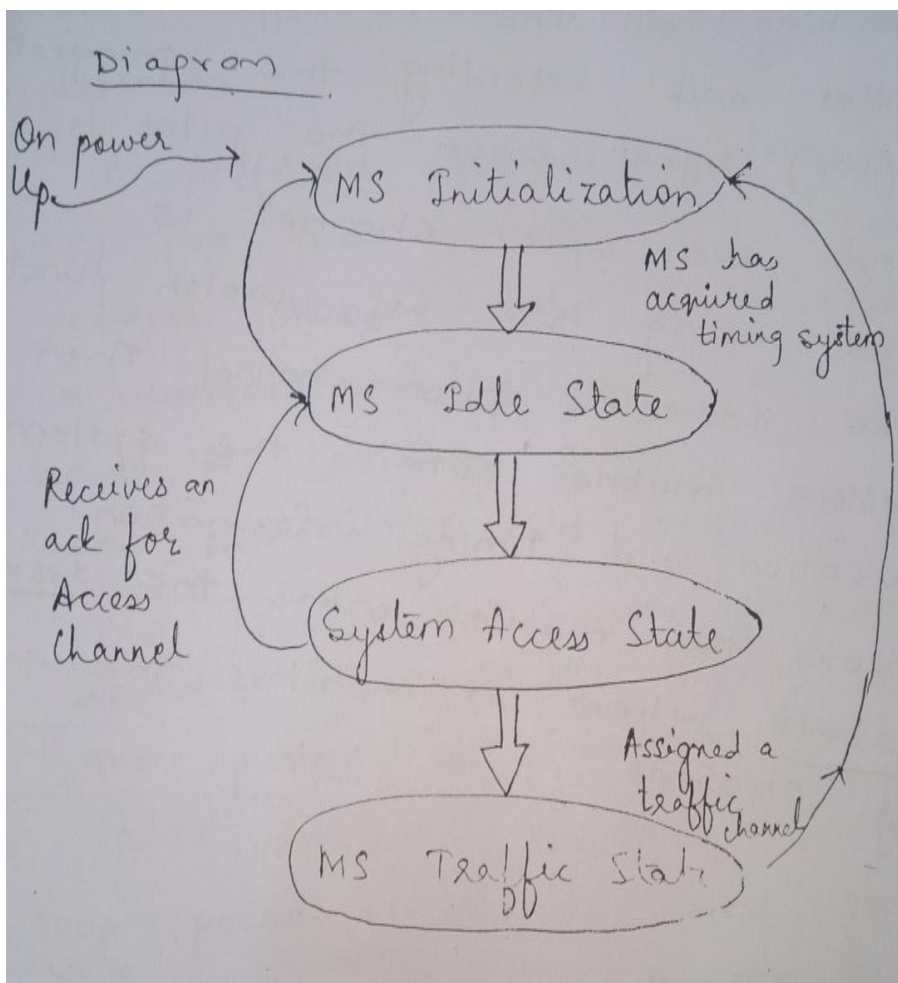 Diagram
On power
Up.
MS Initialization
MS has
acquired
timing system
MS Idle State
Receives an
ack for
Access
Channel
System Access State
Assigned a
traffic
channel
MS Traffic State